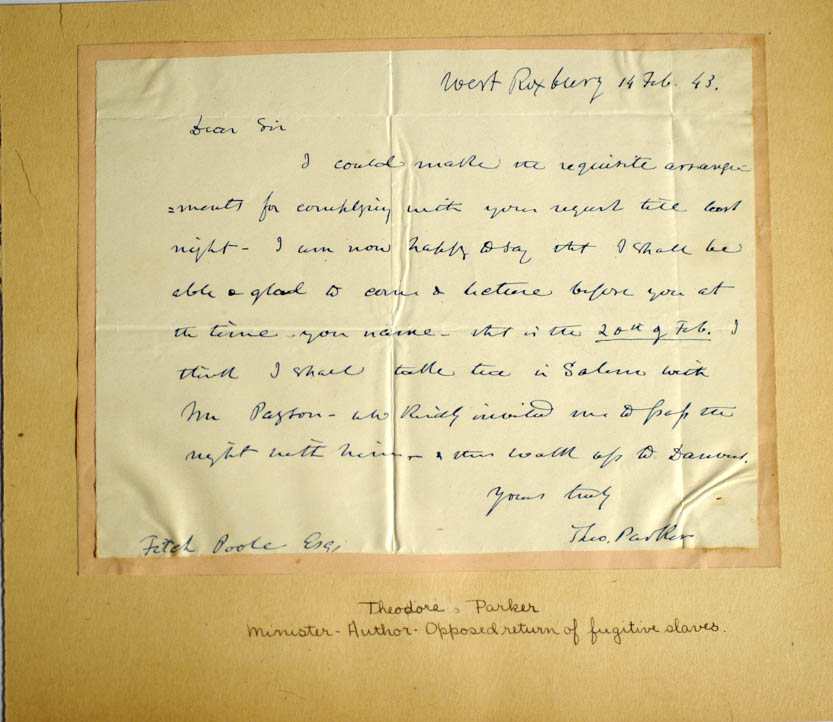 West Roxbury 14 Feb. 43.
Dear Sir
I could make the requisite arrange=
=ments for complying with your request till last
night - I am now happy to say tht I shall be
able & glad to come & lecture before you at
the time you name - tht is the 20th of Feb. I
think I shall take tea in Salem with
Mr Payson - who kindly invited me to pass the
night with him - & then walk up to Danvers.
Yours truly
Theo. Parker
Fitch Poole Esq,
Theodore Parker
Minister - Author - Opposed return of fugitive slaves.